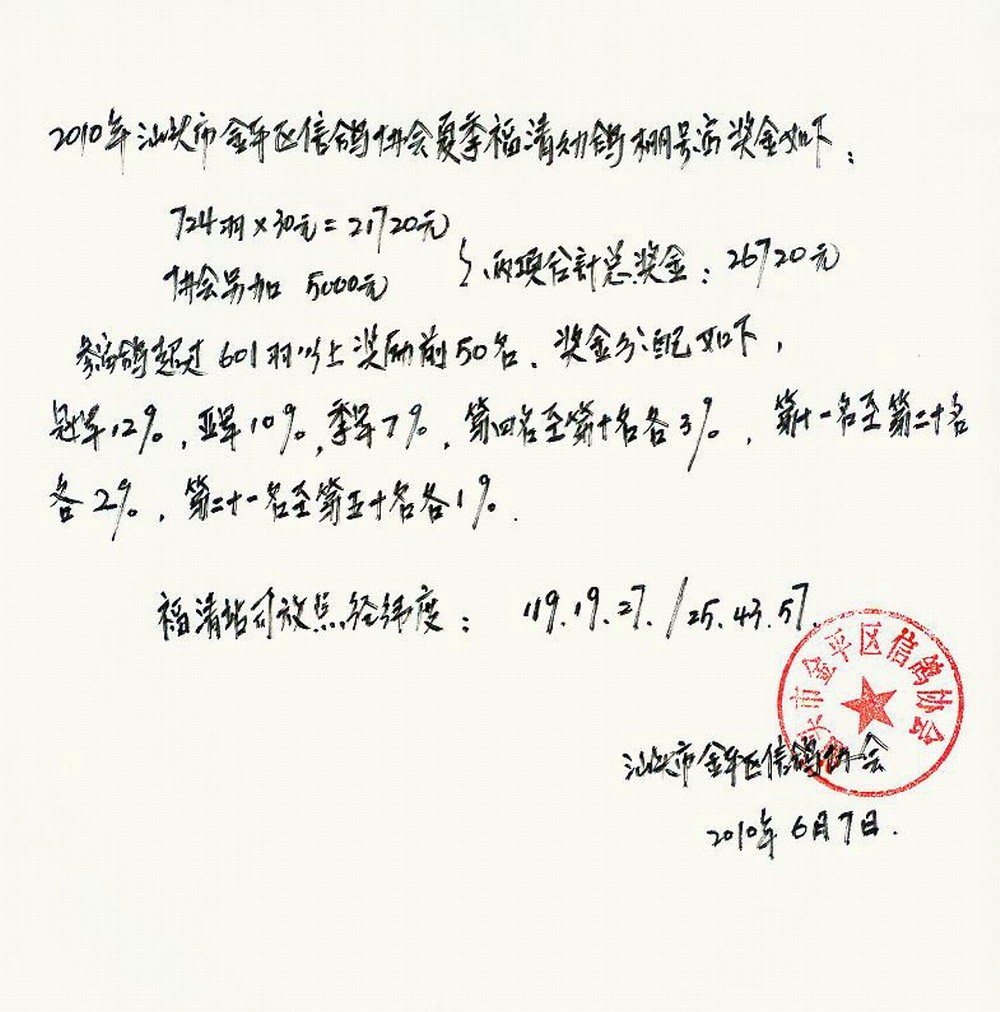 2010年汕头市金平区信鸽协会夏季福清幼鸽棚号赛奖金如下：
724羽×30元=21720元
协会另加 5000元
}、两项合计总奖金：26720元
参赛鸽超过601羽以上奖励前50名、奖金分配如下，
冠军12%、亚军10%、季军7%、第四名至第十名各3%、第十一名至第二十名
各2%、第二十一名至第五十名各1%.
福清站司放点经纬度：119.19.27./25.43.57.
汕头市金平区信鸽协会
汕头市金平区信鸽协会
2010年6月7日.